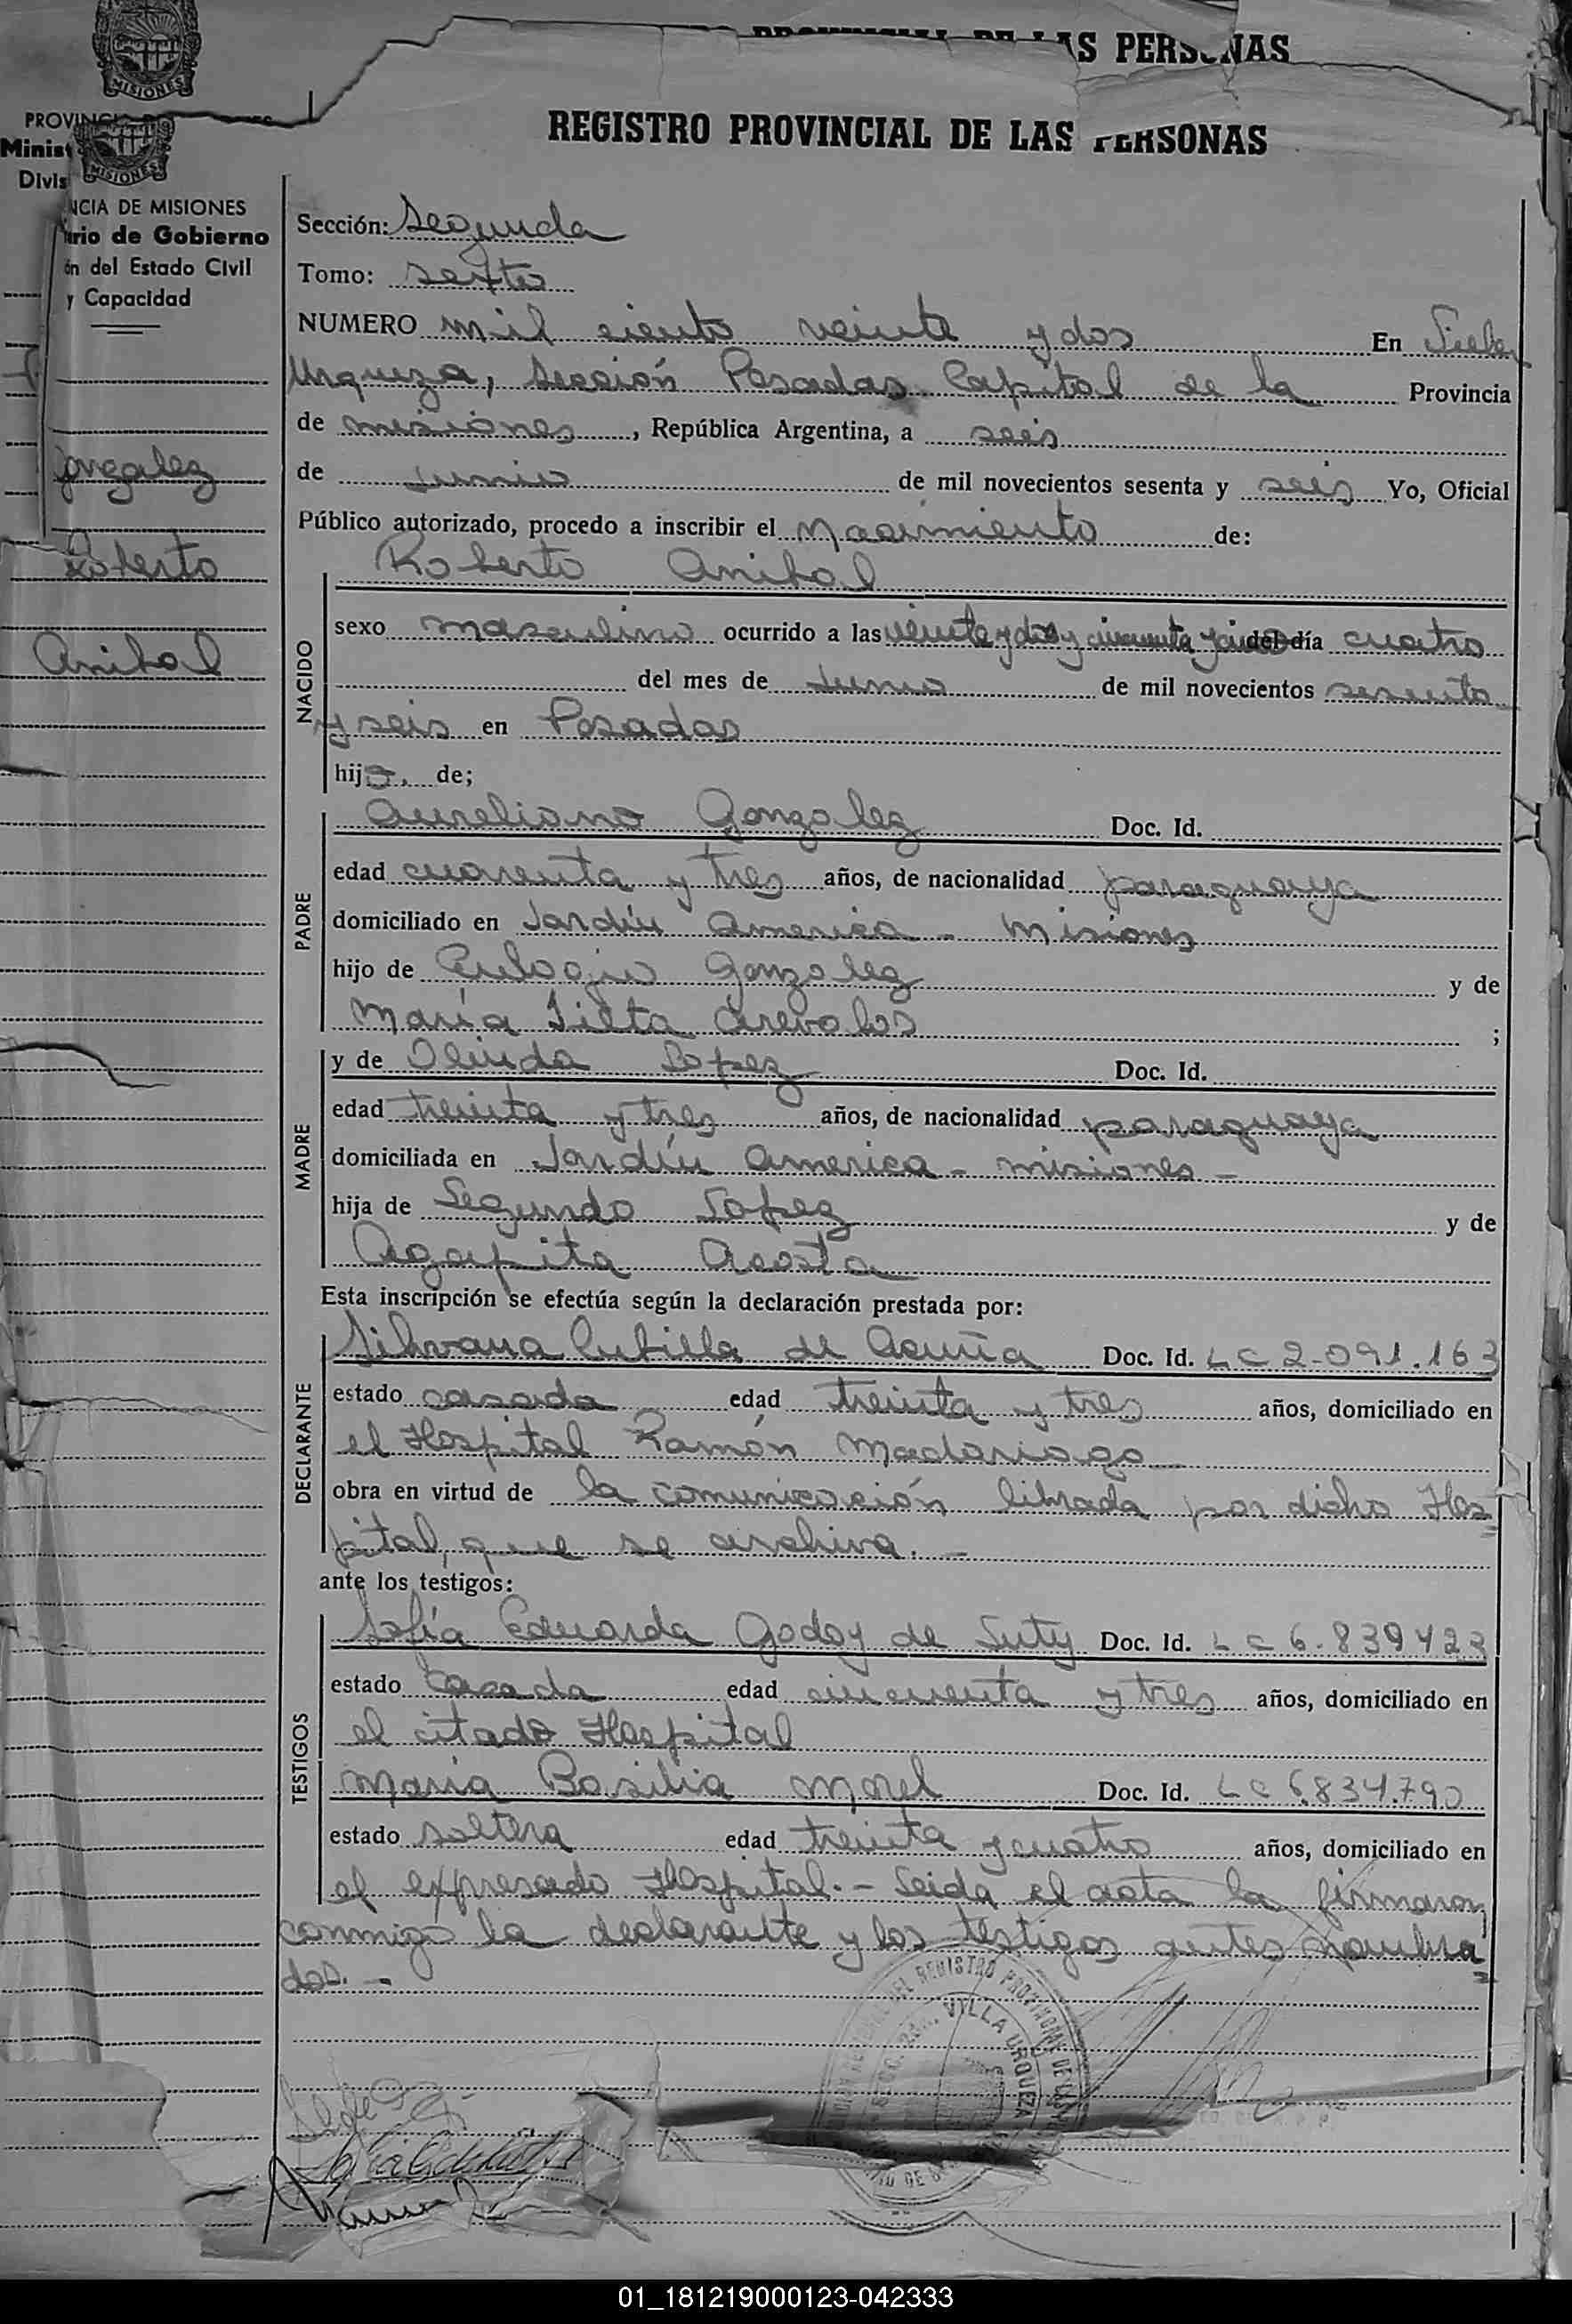 MISIONES
LAS PERSONAS
REGISTRO PROVINCIAL DE LAS PERSONAS
PROVINCIA DE
Minis
Divis
MISIONES
NCIA DE MISIONES
rio de Gobierno
ón del Estado Civil
y Capacidad
Gonzalez
Roberto
Anibal
Sección: Segunda
Tomo: sexto
NUMERO mil ciento veinte y dos En
Urquiza, Sección Posadas Capital de la Provincia
de misiones, República Argentina, a seis
de Junio de mil novecientos sesenta y seis Yo, Oficial
Público autorizado, procedo a inscribir el Nacimiento de:
NACIDO
Roberto Anibal
sexo masculino ocurrido a las veinte y dos y cincuenta y cinco del día cuatro
del mes de Junio de mil novecientos sesenta
y seis en Posadas
hijo, de;
PADRE
Aureliano Gonzalez Doc. Id.
edad cuarenta y tres años, de nacionalidad paraguaya
domiciliado en Jardín America - Misiones
hijo de Eulogio Gonzalez y de
María Arevalos ;
MADRE
y de Olinda Lopez Doc. Id.
edad treinta y tres años, de nacionalidad paraguaya
domiciliada en Jardín America - misiones -
hija de Segundo Lopez y de
Agapita Acosta
Esta inscripción se efectúa según la declaración prestada por:
DECLARANTE
Silvana Cubilla de Acuña Doc. Id. LC 2.091.163
estado casada edad treinta y tres años, domiciliado en
el Hospital Ramón Madariaga
obra en virtud de la comunicación librada por dicho Hos=
pital, que se archiva. -
ante los testigos:
TESTIGOS
Sofía Eduarda Godoy de Suty Doc. Id. LC 6.839423
estado Casada edad cincuenta y tres años, domiciliado en
el citado Hospital
María Basilia Morel Doc. Id. LC 6.834.790
estado soltera edad treinta y cuatro años, domiciliado en
el expresado Hospital. - Leida el acta la firmaron
conmigo la declarante y los testigos antes nombra=
dos. -
VILLA URQUIZA
01_181219000123-042333